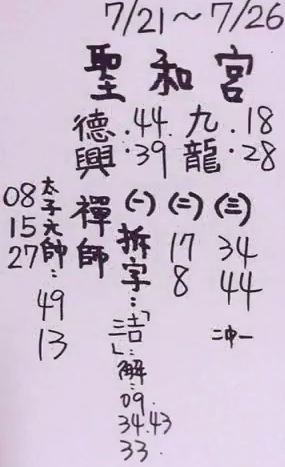 7/21～7/26
聖和宮
德.44.九.18
興.39龍.28
禪師
太子元帥:49
13
08
15
27
(一)拆字:「言吉」:解:
09.
34.43
33.
(二)
17
8
(三)
34
44
二中一